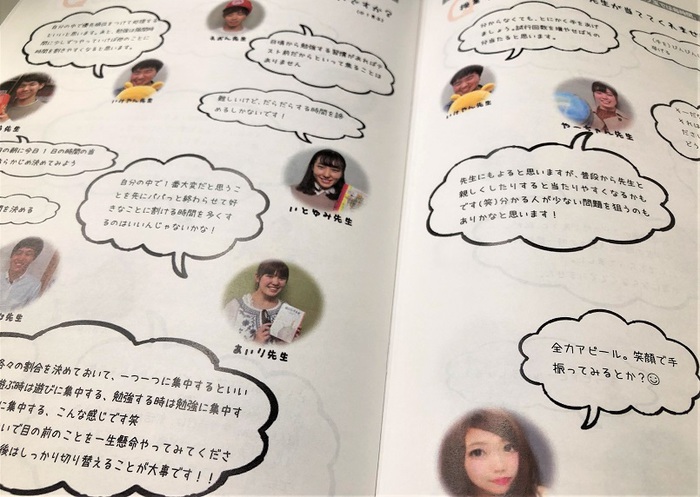 すか？
自分の中で優先順位をつけて処理する
といいと思います。あと、勉強は隙間時
間に少しずつやっていけば他のことに
時間を割きやすくなると思います。
先生
日頃から勉強する習慣があればテ
スト前だからといって焦ることは
ありません
いけやん先生
難しいけど、だらだらする時間を諦
めるしかないです！
の前に今日！日の時間の当
らかじめ決めてみよう
を決める
いとゆみ先生
自分の中で１番大変だと思うこ
とを先にパパっと終わらせて好
きなことに割ける時間を多くす
るのはいいんじゃないかな！
先生
あいり先生
各々の割合を決めておいて、一つ一つに集中するといい
遊ぶ時は遊びに集中する、勉強する時は勉強に集中す
に集中する、こんな感じです笑
いで目の前のことを一生懸命やってみてくださ
後はしっかり切り替えることが大事です！！
先生が当ててくれませ
分からなくても、とにかく手をあげ
ましょう。試行回数を増やせばその
分当たると思います。
いけやん先生
やーちゃん先生
先生にもよると思いますが、普段から先生と
親しくしたりすると当たりやすくなるかも
です(笑)分かる人が少ない問題を狙うのも
ありかなと思います！
全力アピール。笑顔で手
振ってみるとか？☺